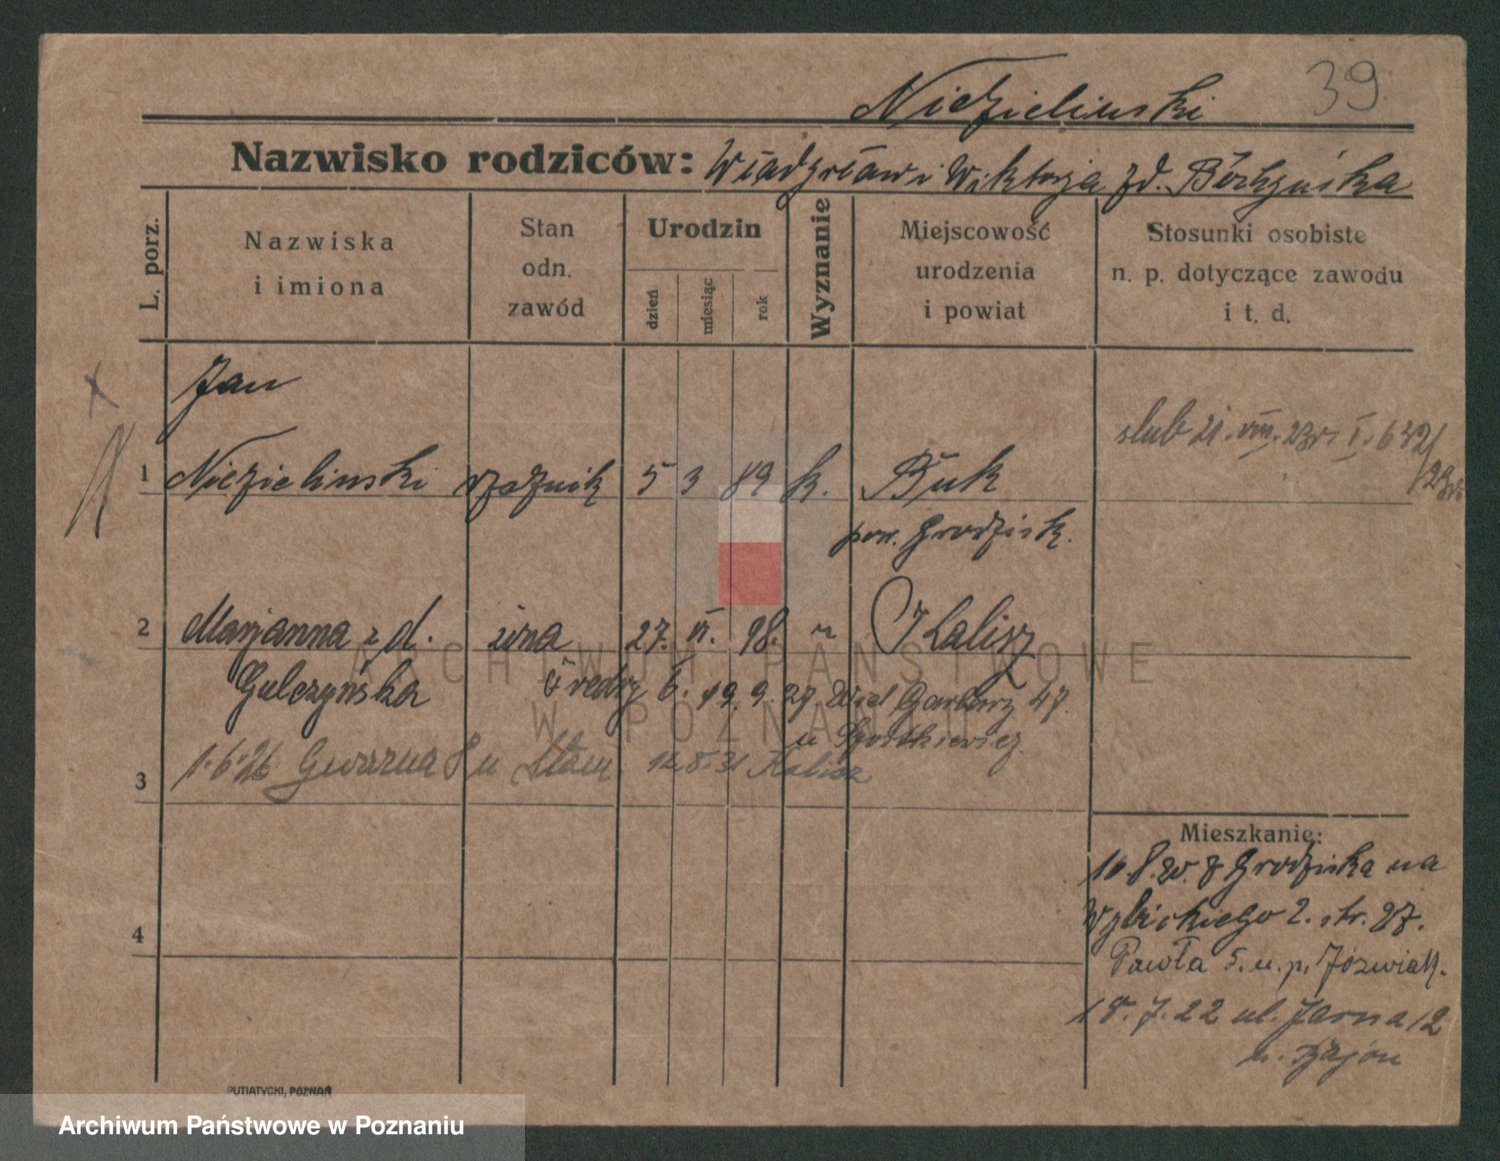 39
Niezielinski
Nazwisko rodziców: Władysław i Wiktorja zd.
L. porz.
Nazwiska i imiona
Stan odn. zawód
Urodzin
dzień
miesiąc
rok
Wyznanie
Miejscowość urodzenia i powiat
Stosunki osobiste n. p. dotyczące zawodu i t. d.
Jan
ślub 21. VIII. 23 r.
1 Niezielinski rzeźnik 5 3 89 k. Buk
pow. Grodzisk.
2 Marjanna z d. żona 27. VI. 98. Kalisz
Gulczyńska 19. 9. 27 Wiel Garbary 47.
3 1.6.26 Gwarna 8 u 31 Kalisz
4
Mieszkanie:
10.8. z Grodziska na
Wybickiego 2. str. 27.
Pawła 5. u. p. Jóźwiak.
18.7.22 ul. Jasna 12
u. Zająu
PUTIATYCKI, POZNAŃ
ARCHIWUM PAŃSTWOWE
W POZNANIU
Archiwum Państwowe w Poznaniu